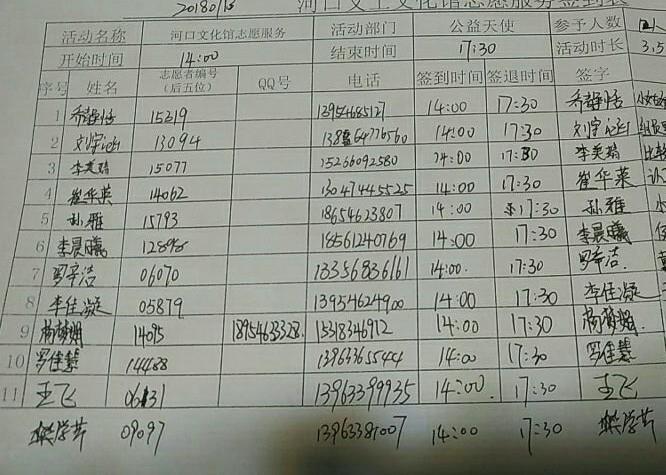 河口文王文化馆志愿服务签到表
活动名称 河口文化馆志愿服务 活动部门 公益天使 参予人数
开始时间 14:00 结束时间 17:30 活动时长 3.5
序号 姓名 志愿者编号（后五位） QQ号 电话 签到时间 签退时间 签字
1 乔静恬 15219 12954685127 14:00 17:30 乔静恬
2 刘宇涵 13094 14:00 17:30 刘宇涵
3 李美瑶 15077 15266092580 14:00 17:30 李美瑶
4 崔华英 14062 13047445525 14:00 17:30 崔华英
5 孙雅 15793 18654623807 14:00 17:30 孙雅
6 李晨曦 12898 18561240769 14:00 17:30 李晨曦
7 罗帝洁 06070 13356836161 14:00 17:30 罗帝洁
8 李佳凝 05879 13954624900 14:00 17:30 李佳凝
9 杨梦娟 14095 18954633328 15318346912 14:00 17:30 杨梦娟
10 罗佳慧 14488 13963365544 14:00 17:30 罗佳慧
11 王飞 06131 13963399935 14:00 17:30 王飞
09097 13963381007 14:00 17:30